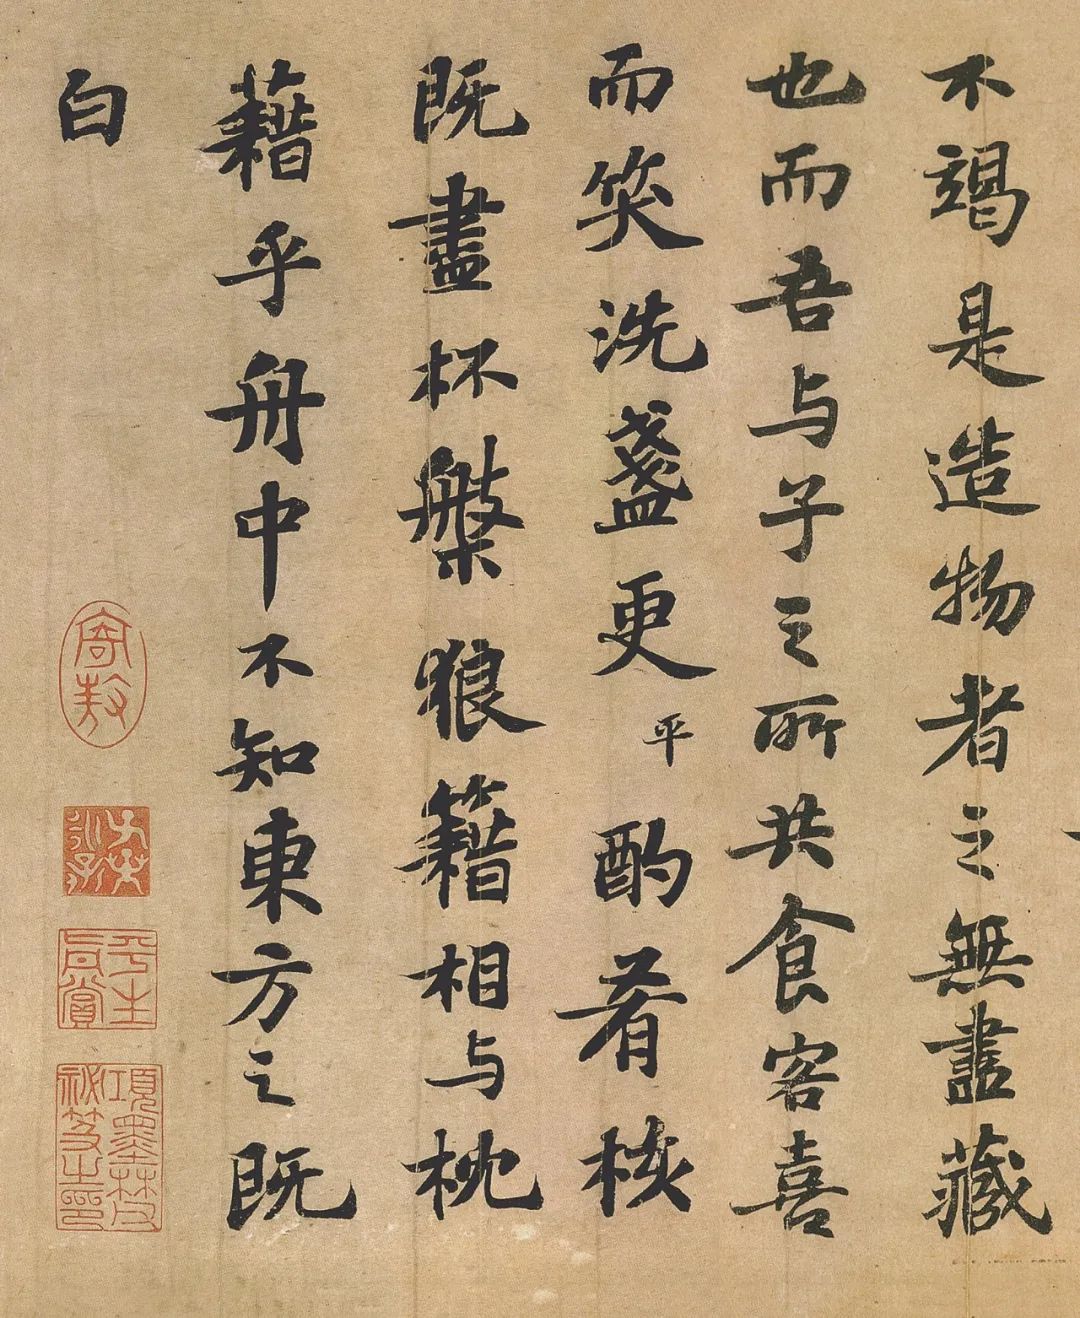 不竭是造物者之無盡藏
也而吾与子之所共食客喜
而笑洗盞更平酌肴核
既盡杯槃狼籍相与枕
藉乎舟中不知東方之既
白
寄敖
平生真賞
項墨林祕笈之印